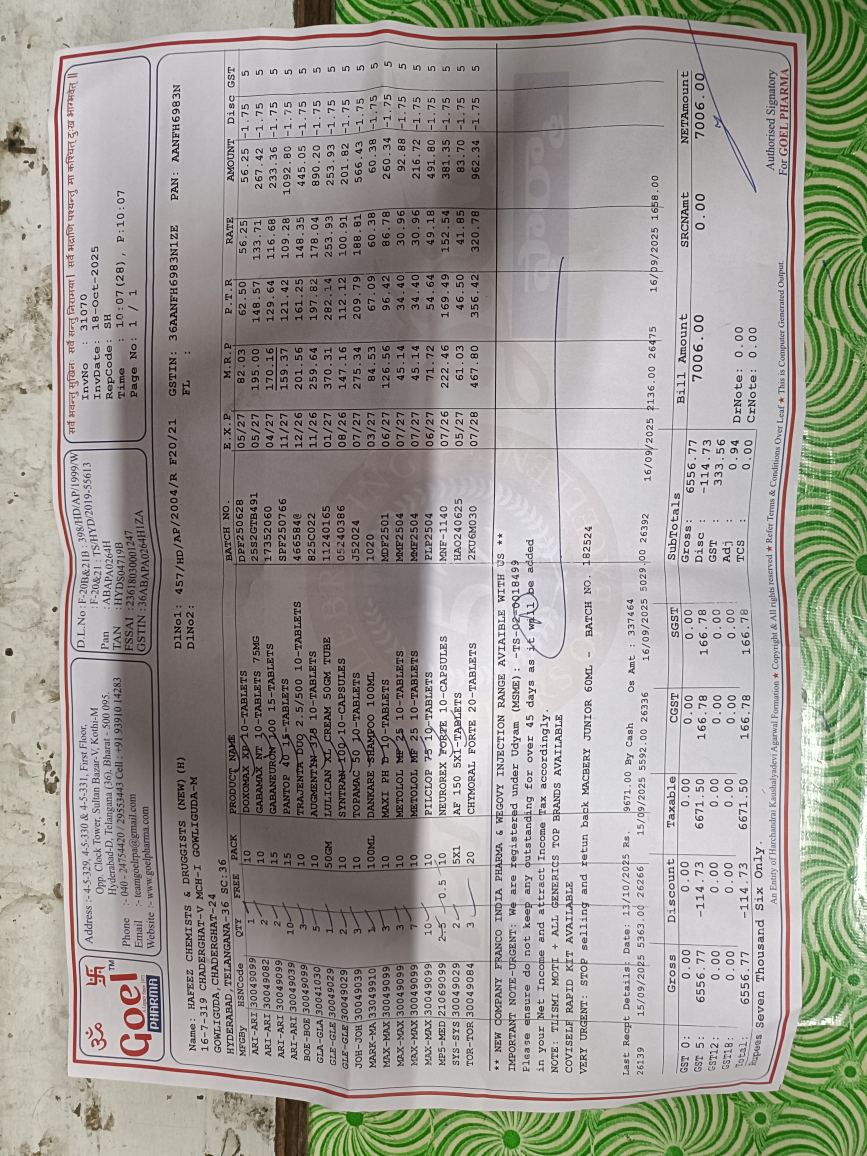 सर्वे भवन्तु सुखिनः सर्वे सन्तु निरामया। सर्वे भद्राणि पश्यन्तु मा कश्चित् दुःख भाग्भवेत् ॥
ॐ 卐
Goel™
PHARMA
Address :- 4-5-329, 4-5-330 & 4-5-331, First Floor,
Opp. Clock Tower, Sultan Bazar-V, Kothi-M
Hyderabad-D, Telangana (36), Bharat - 500 095.
Phone :- 040 - 24754420 / 29553443 Cell : +91 93910 14283
Email :- teamgoelrpa@gmail.com
Website :- www.goelpharma.com
D.L.No : F-20B&21B : 398/HD/AP/1999/W
: F-20&21 : TS/HYD/2019-55613
Pan : ABAPA0264H
TAN : HYDS04719B
FSSAI : 23618030001247
GSTIN : 36ABAPA0264H1ZA
InvNo : 31070
InvDate: 18-Oct-2025
RepCode: SH
Time : 10:07(28), P:10:07
Page No: 1 / 1
Name: HAFEEZ CHEMISTS & DRUGGISTS (NEW) (H)
16-7-319 CHADERGHAT-V MCH-I GOWLIGUDA-M
GOWLIGUDA,CHADERGHAT-24
HYDERABAD,TELANGANA-36 SC:36
DlNo1: 457/HD/AP/2004/R F20/21 GSTIN: 36AANFH6983N1ZE PAN: AANFH6983N
DlNo2: FL :
MFGBy HSNCode QTY FREE PACK PRODUCT NAME BATCH NO. E.X.P. M.R.P P.T.R RATE AMOUNT Disc GST
ARI-ARI 30049099 1 10 DOXOMAX XP 10-TABLETS DPF250628 05/27 82.03 62.50 56.25 56.25 -1.75 5
ARI-ARI 30049082 2 10 GABAMAX NT 10-TABLETS 75MG 25S2GTB491 05/27 195.00 148.57 133.71 267.42 -1.75 5
ARI-ARI 30049099 2 15 GABANEURON 100 15-TABLETS 17352060 04/27 170.16 129.64 116.68 233.36 -1.75 5
ARI-ARI 30049039 10 15 PANTOP 40 15-TABLETS SPF250766 11/27 159.37 121.42 109.28 1092.80 -1.75 5
BOE-BOE 30049099 3 10 TRAJENTA DUO 2.5/500 10-TABLETS 466584@ 12/26 201.56 161.25 148.35 445.05 -1.75 5
GLA-GLA 30041030 5 10 AUGMENTIN 375 10-TABLETS 825C022 11/26 259.64 197.82 178.04 890.20 -1.75 5
GLE-GLE 30049029 1 50GM LULICAN XL CREAM 50GM TUBE 11240165 01/27 370.31 282.14 253.93 253.93 -1.75 5
GLE-GLE 30049029 2 10 SYNTRAN 100 10-CAPSULES 05240386 08/26 147.16 112.12 100.91 201.82 -1.75 5
JOH-JOH 30049039 3 10 TOPAMAC 50 10-TABLETS J52024 07/27 275.34 209.79 188.81 566.43 -1.75 5
MARK-MA 33049910 1 100ML DANKARE SHAMPOO 100ML 1020 03/27 84.53 67.09 60.38 60.38 -1.75 5
MAX-MAX 30049099 3 10 MAXI PH D 10-TABLETS MDF2501 06/27 126.56 96.42 86.78 260.34 -1.75 5
MAX-MAX 30049099 3 10 METOLOL MF 25 10-TABLETS MMF2504 07/27 45.14 34.40 30.96 92.88 -1.75 5
MAX-MAX 30049099 7 10 METOLOL MF 25 10-TABLETS MMF2504 07/27 45.14 34.40 30.96 216.72 -1.75 5
MAX-MAX 30049099 10 10 PILCLOP 75 10-TABLETS PLP2504 06/27 71.72 54.64 49.18 491.80 -1.75 5
MP5-MED 21069099 2.5 0.5 10 NEUROREX FORTE 10-CAPSULES MNF-1140 07/26 222.46 169.49 152.54 381.35 -1.75 5
SYS-SYS 30049029 2 5X1 AF 150 5X1-TABLETS HAO240625 05/27 61.03 46.50 41.85 83.70 -1.75 5
TOR-TOR 30049084 3 20 CHYMORAL FORTE 20-TABLETS 2KU6M030 07/28 467.80 356.42 320.78 962.34 -1.75 5
** NEW COMPANY FRANCO INDIA PHARMA & WEGOVY INJECTION RANGE AVIAIBLE WITH US **
IMPORTANT NOTE-URGENT: We are registered under Udyam (MSME): -TS-02-0018499
Please ensure do not keep any outstanding for over 45 days as it will be added
in your Net Income and attract Income Tax accordingly.
NOTE: TUISMI MOTI + ALL GENERICS TOP BRANDS AVAILABLE
COVISELF RAPID KIT AVAILABLE
VERY URGENT: STOP selling and retun back MACBERY JUNIOR 60ML - BATCH NO. 182524
Last Recpt Details: Date: 13/10/2025 Rs. 9671.00 By Cash Os Amt : 337464
26139 15/09/2025 5363.00 26266 15/09/2025 5592.00 26336 16/09/2025 5029.00 26392 16/09/2025 2136.00 26475 16/09/2025 1658.00
Gross Discount Taxable CGST SGST SubTotals Bill Amount SRCNAmt NETAmount
GST 0: 0.00 0.00 0.00 0.00 0.00 Gross: 6556.77 7006.00 0.00 7006.00
GST 5: 6556.77 -114.73 6671.50 166.78 166.78 Disc : -114.73
GST12: 0.00 0.00 0.00 0.00 0.00 GST : 333.56
GST18: 0.00 0.00 0.00 0.00 0.00 Adj : 0.94 DrNote: 0.00
Total: 6556.77 -114.73 6671.50 166.78 166.78 TCS : 0.00 CrNote: 0.00
Rupees Seven Thousand Six Only.
Authorised Signatory
For GOEL PHARMA
An Entity of Harchandrai Kaushalyadevi Agarwal Formation ★ Copyright & All rights reserved ★ Refer Terms & Conditions Over Leaf ★ This is Computer Generated Output.